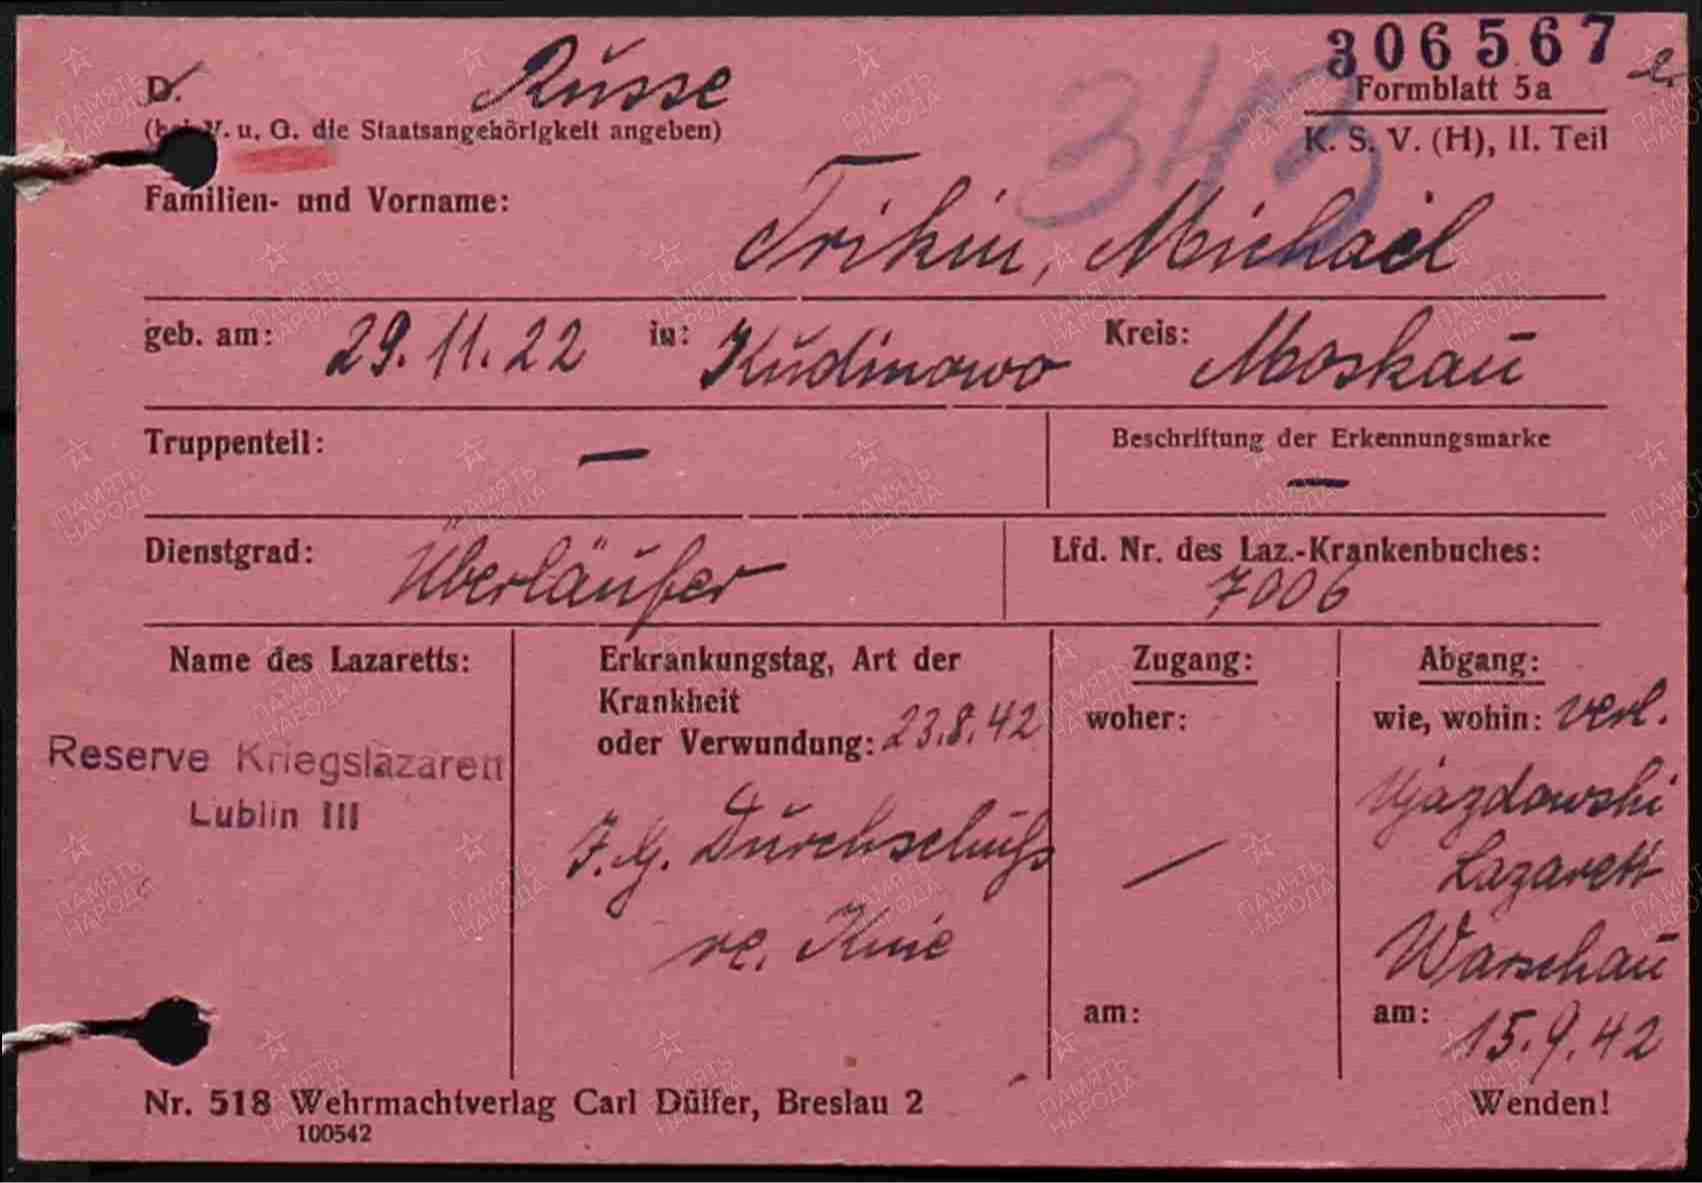 306567
D. Russe
Formblatt 5a
(bei V. u. G. die Staatsangehörigkeit angeben)
K. S. V. (H), II. Teil
343
Familien- und Vorname:
Trikin, Michael
geb. am: 29.11.22 in: Kudinowo Kreis: Moskau
Truppenteil: —
Beschriftung der Erkennungsmarke
—
Dienstgrad: Überläufer
Lfd. Nr. des Laz.-Krankenbuches:
7006
Name des Lazaretts:
Reserve Kriegslazarett
Lublin III
Erkrankungstag, Art der
Krankheit
oder Verwundung: 23.8.42
I.G. Durchschuß
re. Knie
Zugang:
woher:
—
am:
Abgang:
wie, wohin: verl.
Ujazdowski
Lazarett
Warschau
am: 15.9.42
Nr. 518 Wehrmachtverlag Carl Dülfer, Breslau 2
100542
Wenden!
ПАМЯТЬ
НАРОДА